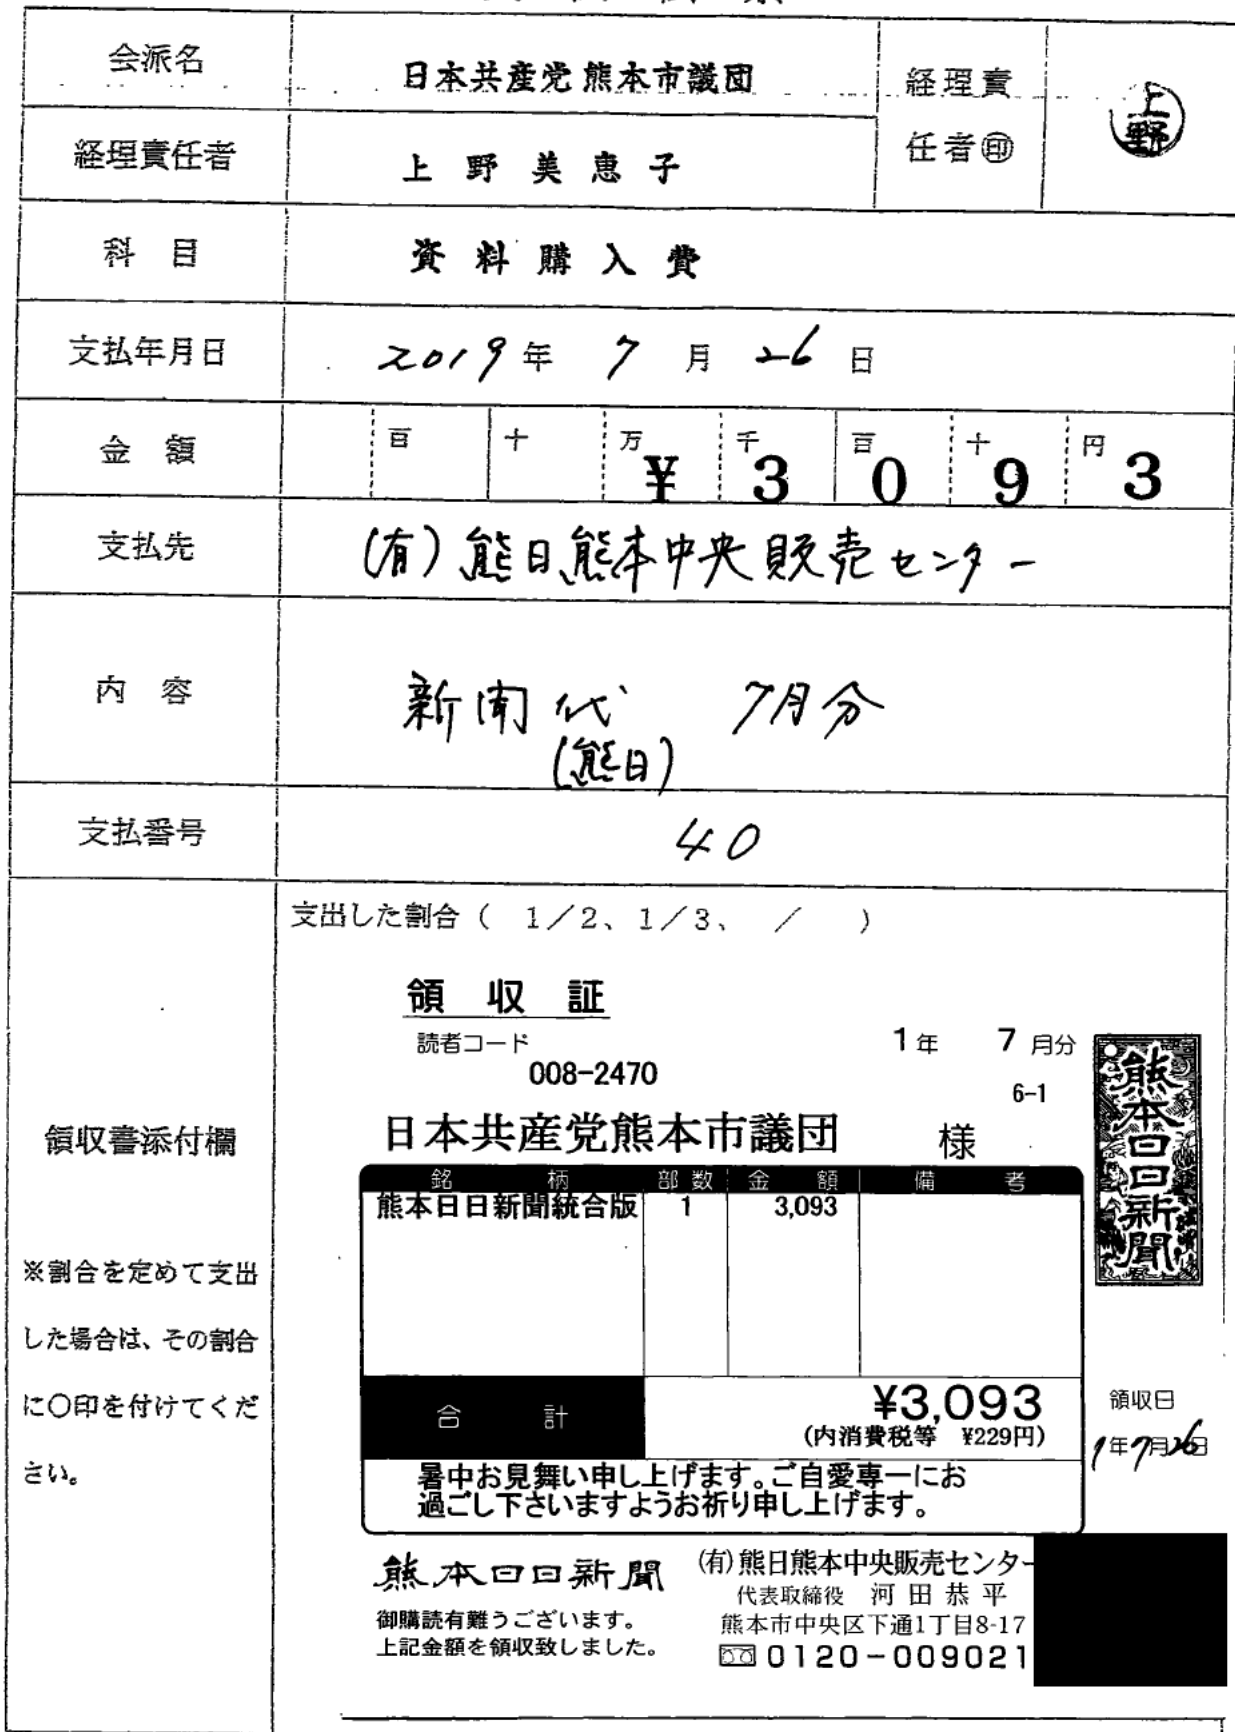 会派名
日本共産党熊本市議団
経理責
任者㊞
上野
経理責任者
上野美恵子
科目
資料購入費
支払年月日
2019年7月26日
金額
百 十 万 千 百 十 円
¥3093
支払先
(有)熊日熊本中央販売センター
内容
新聞代 7月分
(熊日)
支払番号
40
領収書添付欄
※割合を定めて支出
した場合は、その割合
に〇印を付けてくだ
さい。
支出した割合( 1/2、1/3、 / )
領収証
読者コード
008-2470
1年 7月分
6-1
日本共産党熊本市議団 様
熊本日日新聞
銘柄 部数 金額 備考
熊本日日新聞統合版 1 3,093
合計
¥3,093
(内消費税等 ¥229円)
領収日
1年7月26日
暑中お見舞い申し上げます。ご自愛専一にお
過ごし下さいますようお祈り申し上げます。
熊本日日新聞
御購読有難うございます。
上記金額を領収致しました。
(有)熊日熊本中央販売センター
代表取締役 河田恭平
熊本市中央区下通1丁目8-17
0120-009021